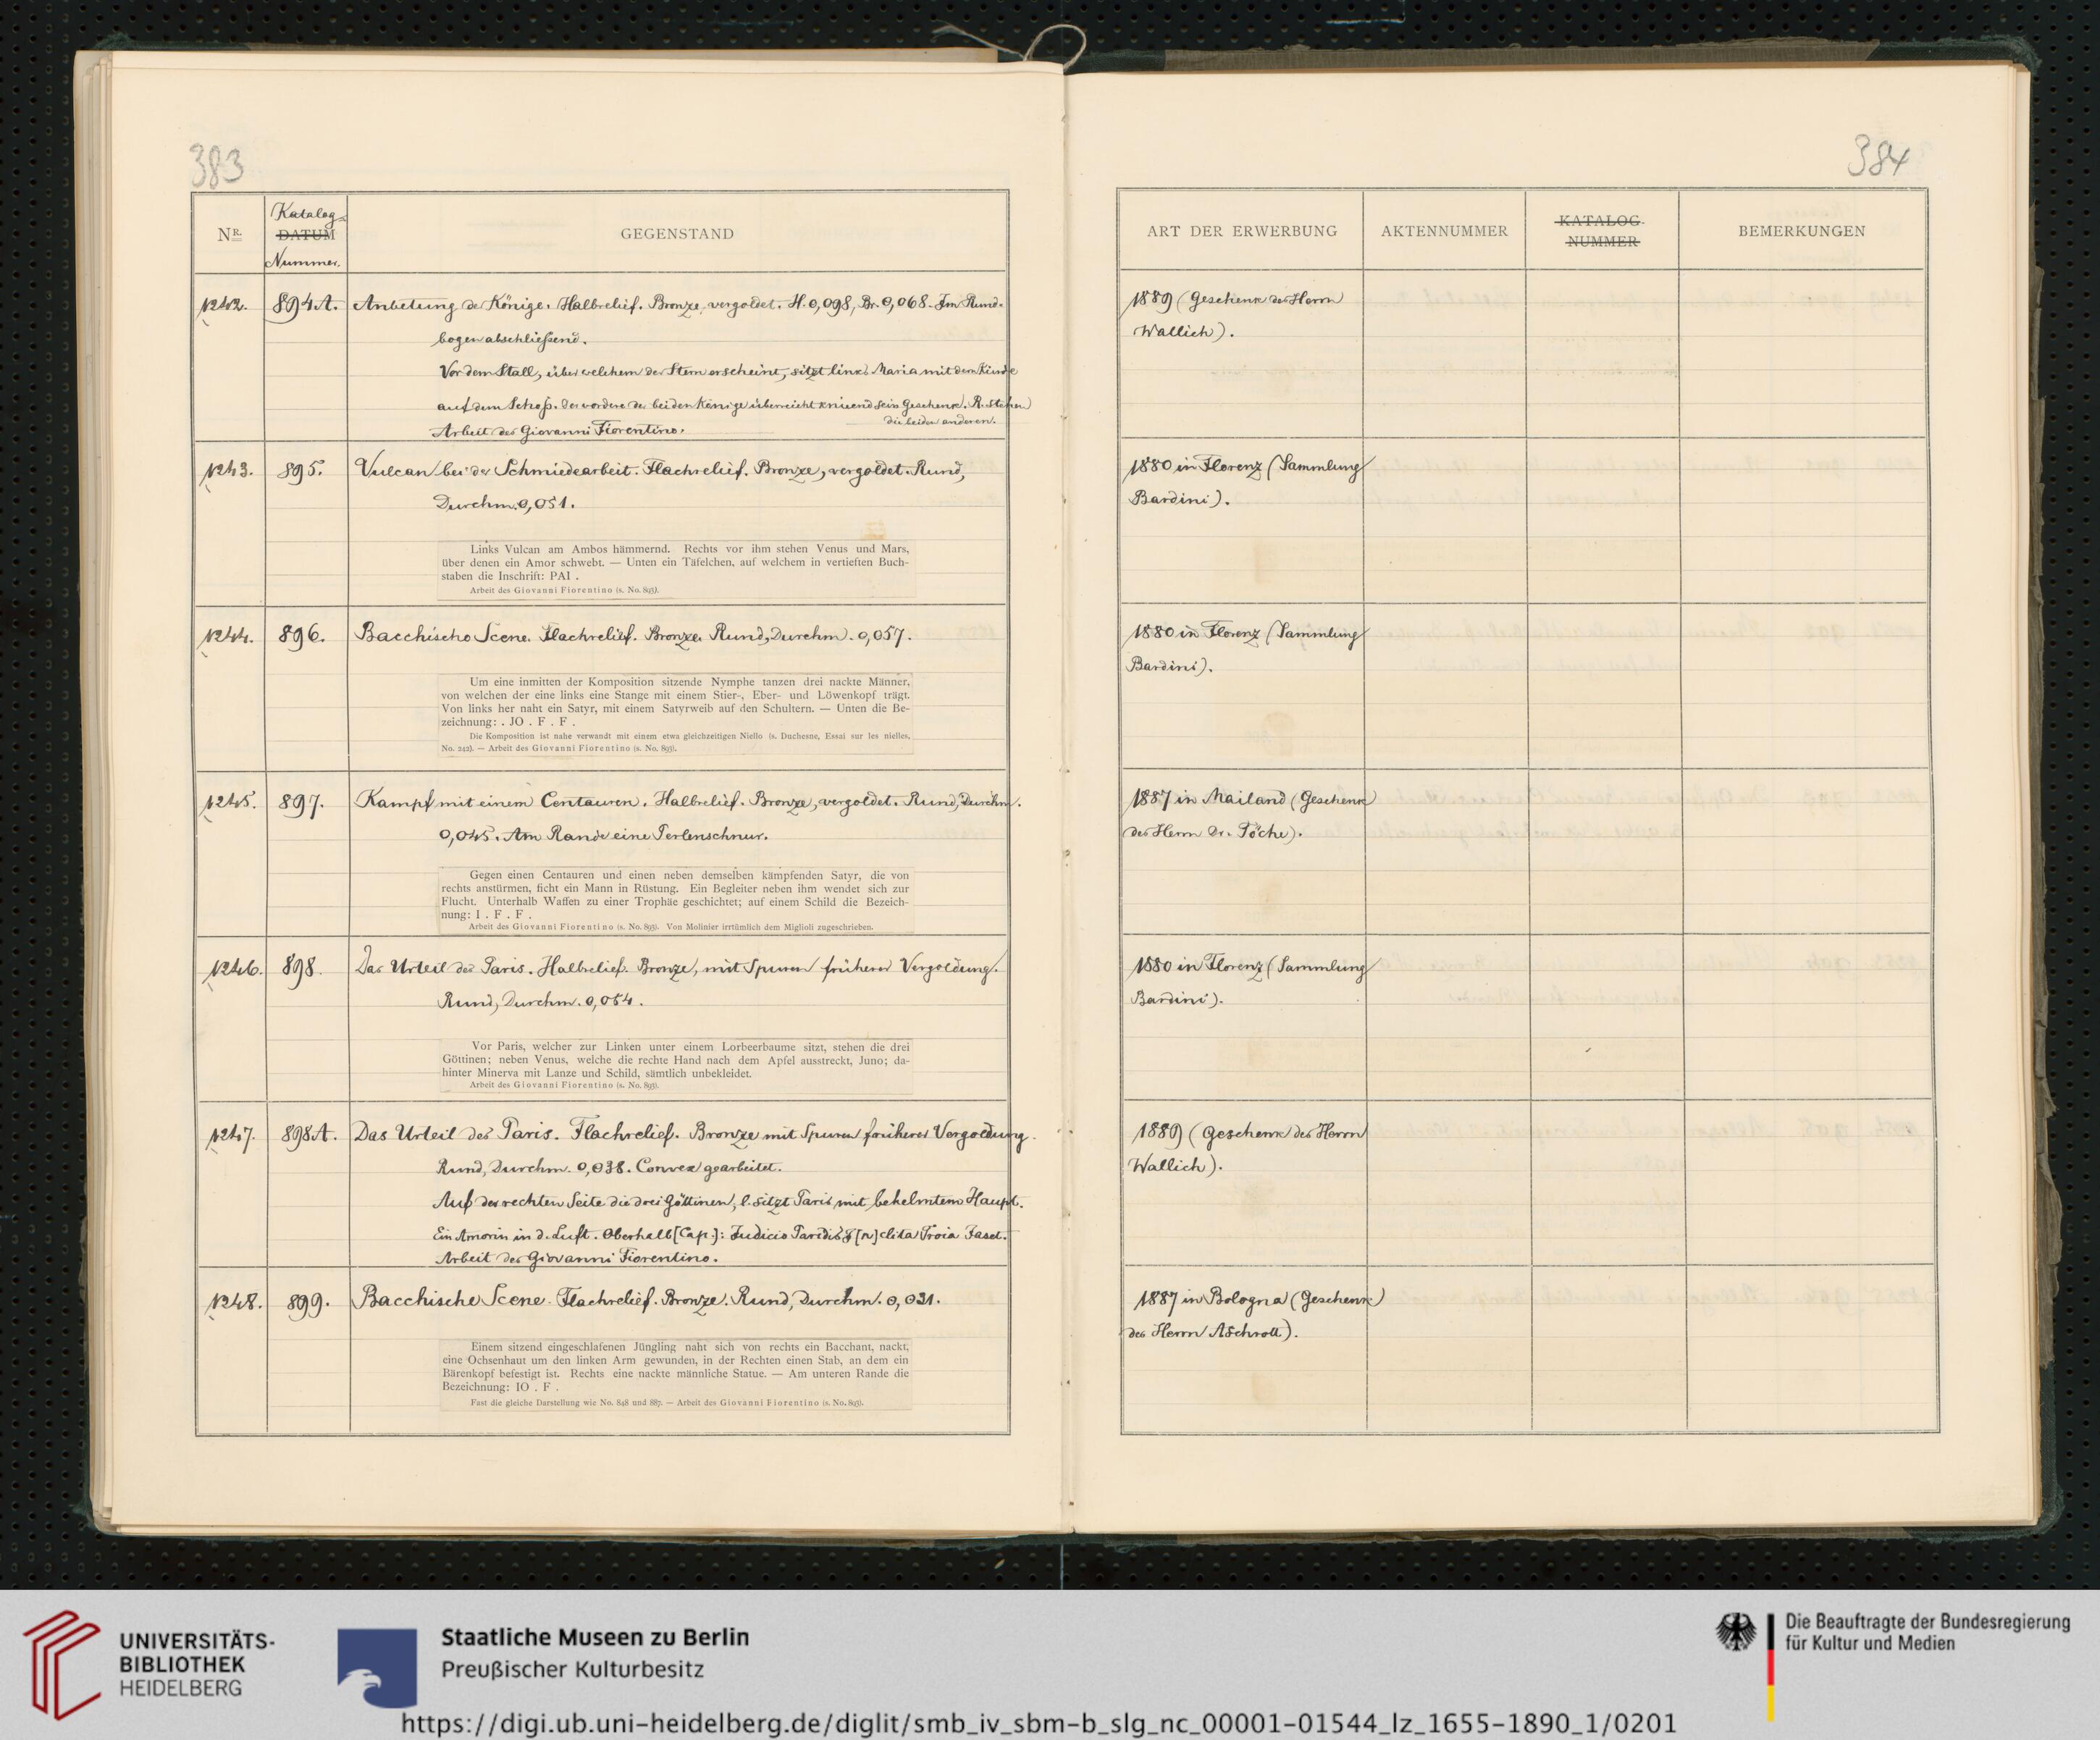 383
384
Nr.
Katalog-
DATUM
Nummer.
GEGENSTAND
ART DER ERWERBUNG
AKTENNUMMER
KATALOG-
NUMMER
BEMERKUNGEN
1242. 894A. Anbetung der Könige. Halbrelief. Bronze, vergoldet. H. 0,098, Br. 0,068. Im Rund-
bogen abschließend.
Vor dem Stall, über welchem der Stern erscheint, sitzt links Maria mit dem Kinde
auf dem Schoß. Der vordere der beiden Könige überreicht knieend sein Geschenk. R. stehen
die beiden anderen.
Arbeit des Giovanni Fiorentino.
1889 (Geschenk des Herrn
Wallich).
1243. 895. Vulcan bei der Schmiedearbeit. Flachrelief. Bronze, vergoldet. Rund,
Durchm. 0,051.
Links Vulcan am Ambos hämmernd. Rechts vor ihm stehen Venus und Mars,
über denen ein Amor schwebt. — Unten ein Täfelchen, auf welchem in vertieften Buch-
staben die Inschrift: PAI .
Arbeit des Giovanni Fiorentino (s. No. 893).
1880 in Florenz (Sammlung
Bardini).
1244. 896. Bacchische Scene. Flachrelief. Bronze. Rund, Durchm. 0,057.
Um eine inmitten der Komposition sitzende Nymphe tanzen drei nackte Männer,
von welchen der eine links eine Stange mit einem Stier-, Eber- und Löwenkopf trägt.
Von links her naht ein Satyr, mit einem Satyrweib auf den Schultern. — Unten die Be-
zeichnung: . JO . F . F .
Die Komposition ist nahe verwandt mit einem etwa gleichzeitigen Niello (s. Duchesne, Essai sur les nielles,
No. 242). — Arbeit des Giovanni Fiorentino (s. No. 893).
1880 in Florenz (Sammlung
Bardini).
1245. 897. Kampf mit einem Centauren. Halbrelief. Bronze, vergoldet. Rund, Durchm.
0,045. Am Rande eine Perlenschnur.
Gegen einen Centauren und einen neben demselben kämpfenden Satyr, die von
rechts anstürmen, ficht ein Mann in Rüstung. Ein Begleiter neben ihm wendet sich zur
Flucht. Unterhalb Waffen zu einer Trophäe geschichtet; auf einem Schild die Bezeich-
nung: I . F . F .
Arbeit des Giovanni Fiorentino (s. No. 893). Von Molinier irrtümlich dem Miglioli zugeschrieben.
1887 in Mailand (Geschenk
des Herrn Dr. Töche).
1246. 898. Das Urteil des Paris. Halbrelief. Bronze, mit Spuren früherer Vergoldung.
Rund, Durchm. 0,054.
Vor Paris, welcher zur Linken unter einem Lorbeerbaume sitzt, stehen die drei
Göttinen; neben Venus, welche die rechte Hand nach dem Apfel ausstreckt, Juno; da-
hinter Minerva mit Lanze und Schild, sämtlich unbekleidet.
Arbeit des Giovanni Fiorentino (s. No. 893).
1880 in Florenz (Sammlung
Bardini).
1247. 898A. Das Urteil des Paris. Flachrelief. Bronze mit Spuren früherer Vergoldung.
Rund, Durchm. 0,038. Convex gearbeitet.
Auf der rechten Seite die drei Göttinen, l. sitzt Paris mit behelmtem Haupt.
Ein Amorin in d. Luft. Oberhalb [Cap.]: Judicio Paridis J[n]clita Troia Jaset.
Arbeit des Giovanni Fiorentino.
1889 (Geschenk des Herrn
Wallich).
1248. 899. Bacchische Scene. Flachrelief. Bronze. Rund, Durchm. 0,031.
Einem sitzend eingeschlafenen Jüngling naht sich von rechts ein Bacchant, nackt,
eine Ochsenhaut um den linken Arm gewunden, in der Rechten einen Stab, an dem ein
Bärenkopf befestigt ist. Rechts eine nackte männliche Statue. — Am unteren Rande die
Bezeichnung: IO . F .
Fast die gleiche Darstellung wie No. 848 und 887. — Arbeit des Giovanni Fiorentino (s. No. 893).
1887 in Bologna (Geschenk
des Herrn Aschrott).
UNIVERSITÄTS-
BIBLIOTHEK
HEIDELBERG
Staatliche Museen zu Berlin
Preußischer Kulturbesitz
Die Beauftragte der Bundesregierung
für Kultur und Medien
https://digi.ub.uni-heidelberg.de/diglit/smb_iv_sbm-b_slg_nc_00001-01544_lz_1655-1890_1/0201